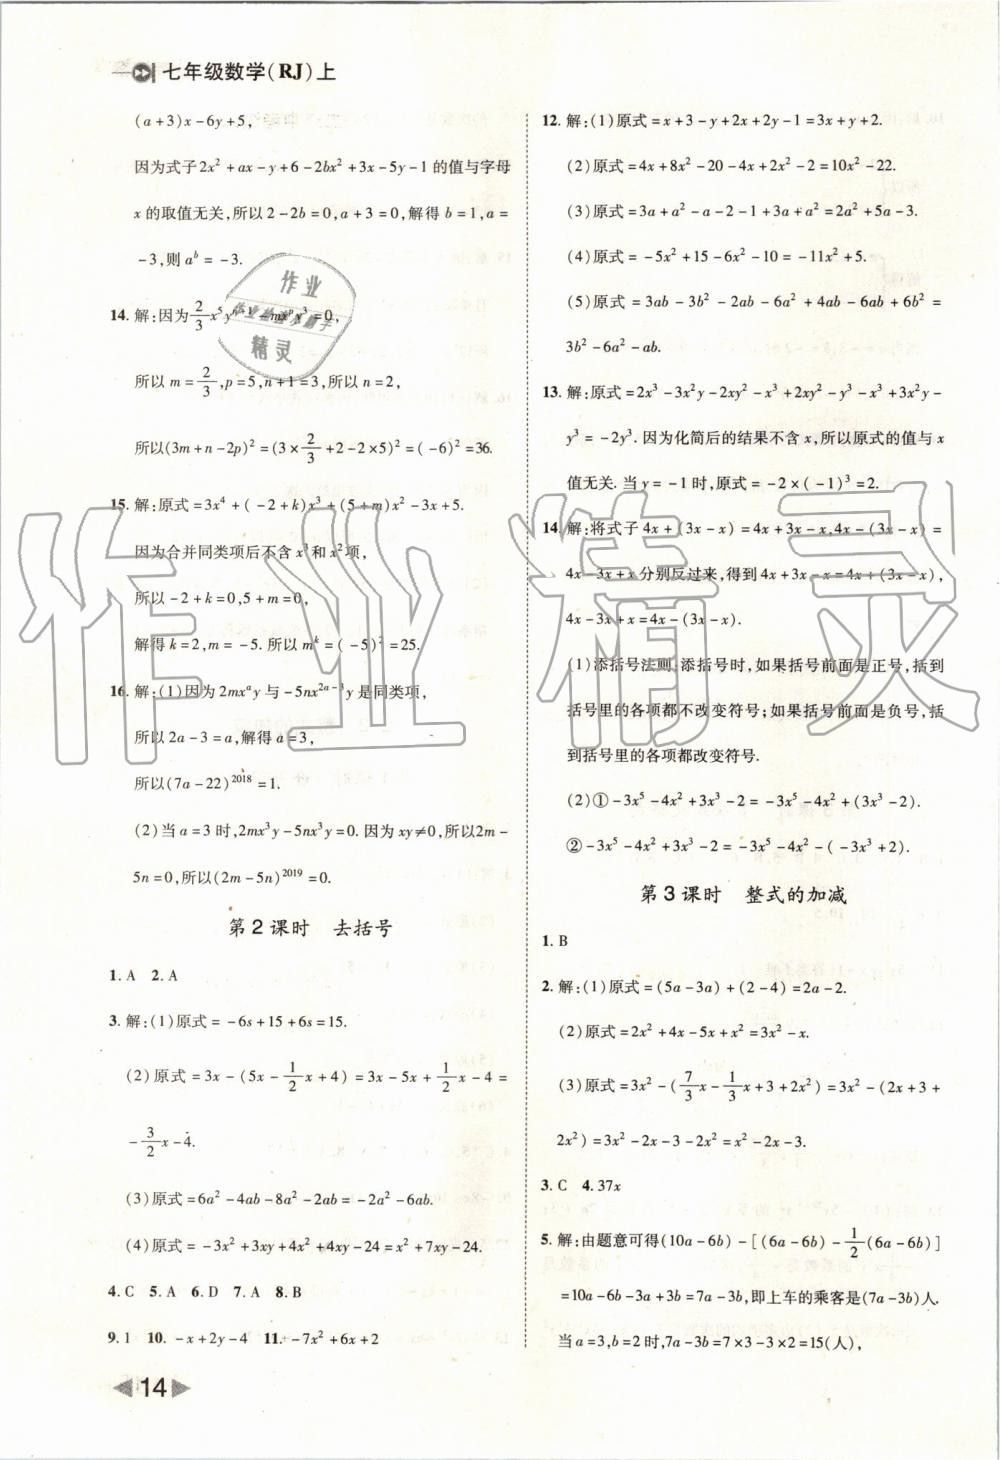 七年级数学(RJ)上
(a+3)x-6y+5,
因为式子2x²+ax-y+6-2bx²+3x-5y-1的值与字母
x的取值无关,所以2-2b=0,a+3=0,解得b=1,a=
-3,则aᵇ=-3.
14. 解:因为2/3x⁵yⁿ⁺¹-mxᵖy³=0,
所以m=2/3,p=5,n+1=3,所以n=2,
所以(3m+n-2p)²=(3×2/3+2-2×5)²=(-6)²=36.
15. 解:原式=3x⁴+(-2+k)x³+(5+m)x²-3x+5.
因为合并同类项后不含x³和x²项,
所以-2+k=0,5+m=0,
解得k=2,m=-5.所以mᵏ=(-5)²=25.
16. 解:(1)因为2mxᵃy与-5nx²ᵃ⁻³y是同类项,
所以2a-3=a,解得a=3,
所以(7a-22)²⁰¹⁸=1.
(2)当a=3时,2mx³y-5nx³y=0.因为xy≠0,所以2m-
5n=0,所以(2m-5n)²⁰¹⁹=0.
第2课时 去括号
1. A 2. A
3. 解:(1)原式=-6s+15+6s=15.
(2)原式=3x-(5x-1/2x+4)=3x-5x+1/2x-4=
-3/2x-4.
(3)原式=6a²-4ab-8a²-2ab=-2a²-6ab.
(4)原式=-3x²+3xy+4x²+4xy-24=x²+7xy-24.
4. C 5. A 6. D 7. A 8. B
9. 1 10. -x+2y-4 11. -7x²+6x+2
14
12. 解:(1)原式=x+3-y+2x+2y-1=3x+y+2.
(2)原式=4x+8x²-20-4x+2x²-2=10x²-22.
(3)原式=3a+a²-a-2-1+3a+a²=2a²+5a-3.
(4)原式=-5x²+15-6x²-10=-11x²+5.
(5)原式=3ab-3b²-2ab-6a²+4ab-6ab+6b²=
3b²-6a²-ab.
13. 解:原式=2x³-3x²y-2xy²-x³+2xy²-y³-x³+3x²y-
y³=-2y³.因为化简后的结果不含x,所以原式的值与x
值无关.当y=-1时,原式=-2×(-1)³=2.
14. 解:将式子4x+(3x-x)=4x+3x-x,4x-(3x-x)=
4x-3x+x分别反过来,得到4x+3x-x=4x+(3x-x),
4x-3x+x=4x-(3x-x).
(1)添括号法则:添括号时,如果括号前面是正号,括到
括号里的各项都不改变符号;如果括号前面是负号,括
到括号里的各项都改变符号.
(2)①-3x⁵-4x²+3x³-2=-3x⁵-4x²+(3x³-2).
②-3x⁵-4x²+3x³-2=-3x⁵-4x²-(-3x³+2).
第3课时 整式的加减
1. B
2. 解:(1)原式=(5a-3a)+(2-4)=2a-2.
(2)原式=2x²+4x-5x+x²=3x²-x.
(3)原式=3x²-(7/3x-1/3x+3+2x²)=3x²-(2x+3+
2x²)=3x²-2x-3-2x²=x²-2x-3.
3. C 4. 37x
5. 解:由题意可得(10a-6b)-[(6a-6b)-1/2(6a-6b)]
=10a-6b-3a+3b=7a-3b,即上车的乘客是(7a-3b)人.
当a=3,b=2时,7a-3b=7×3-3×2=15(人),
作业精灵
作业
作业检查小助手
精灵